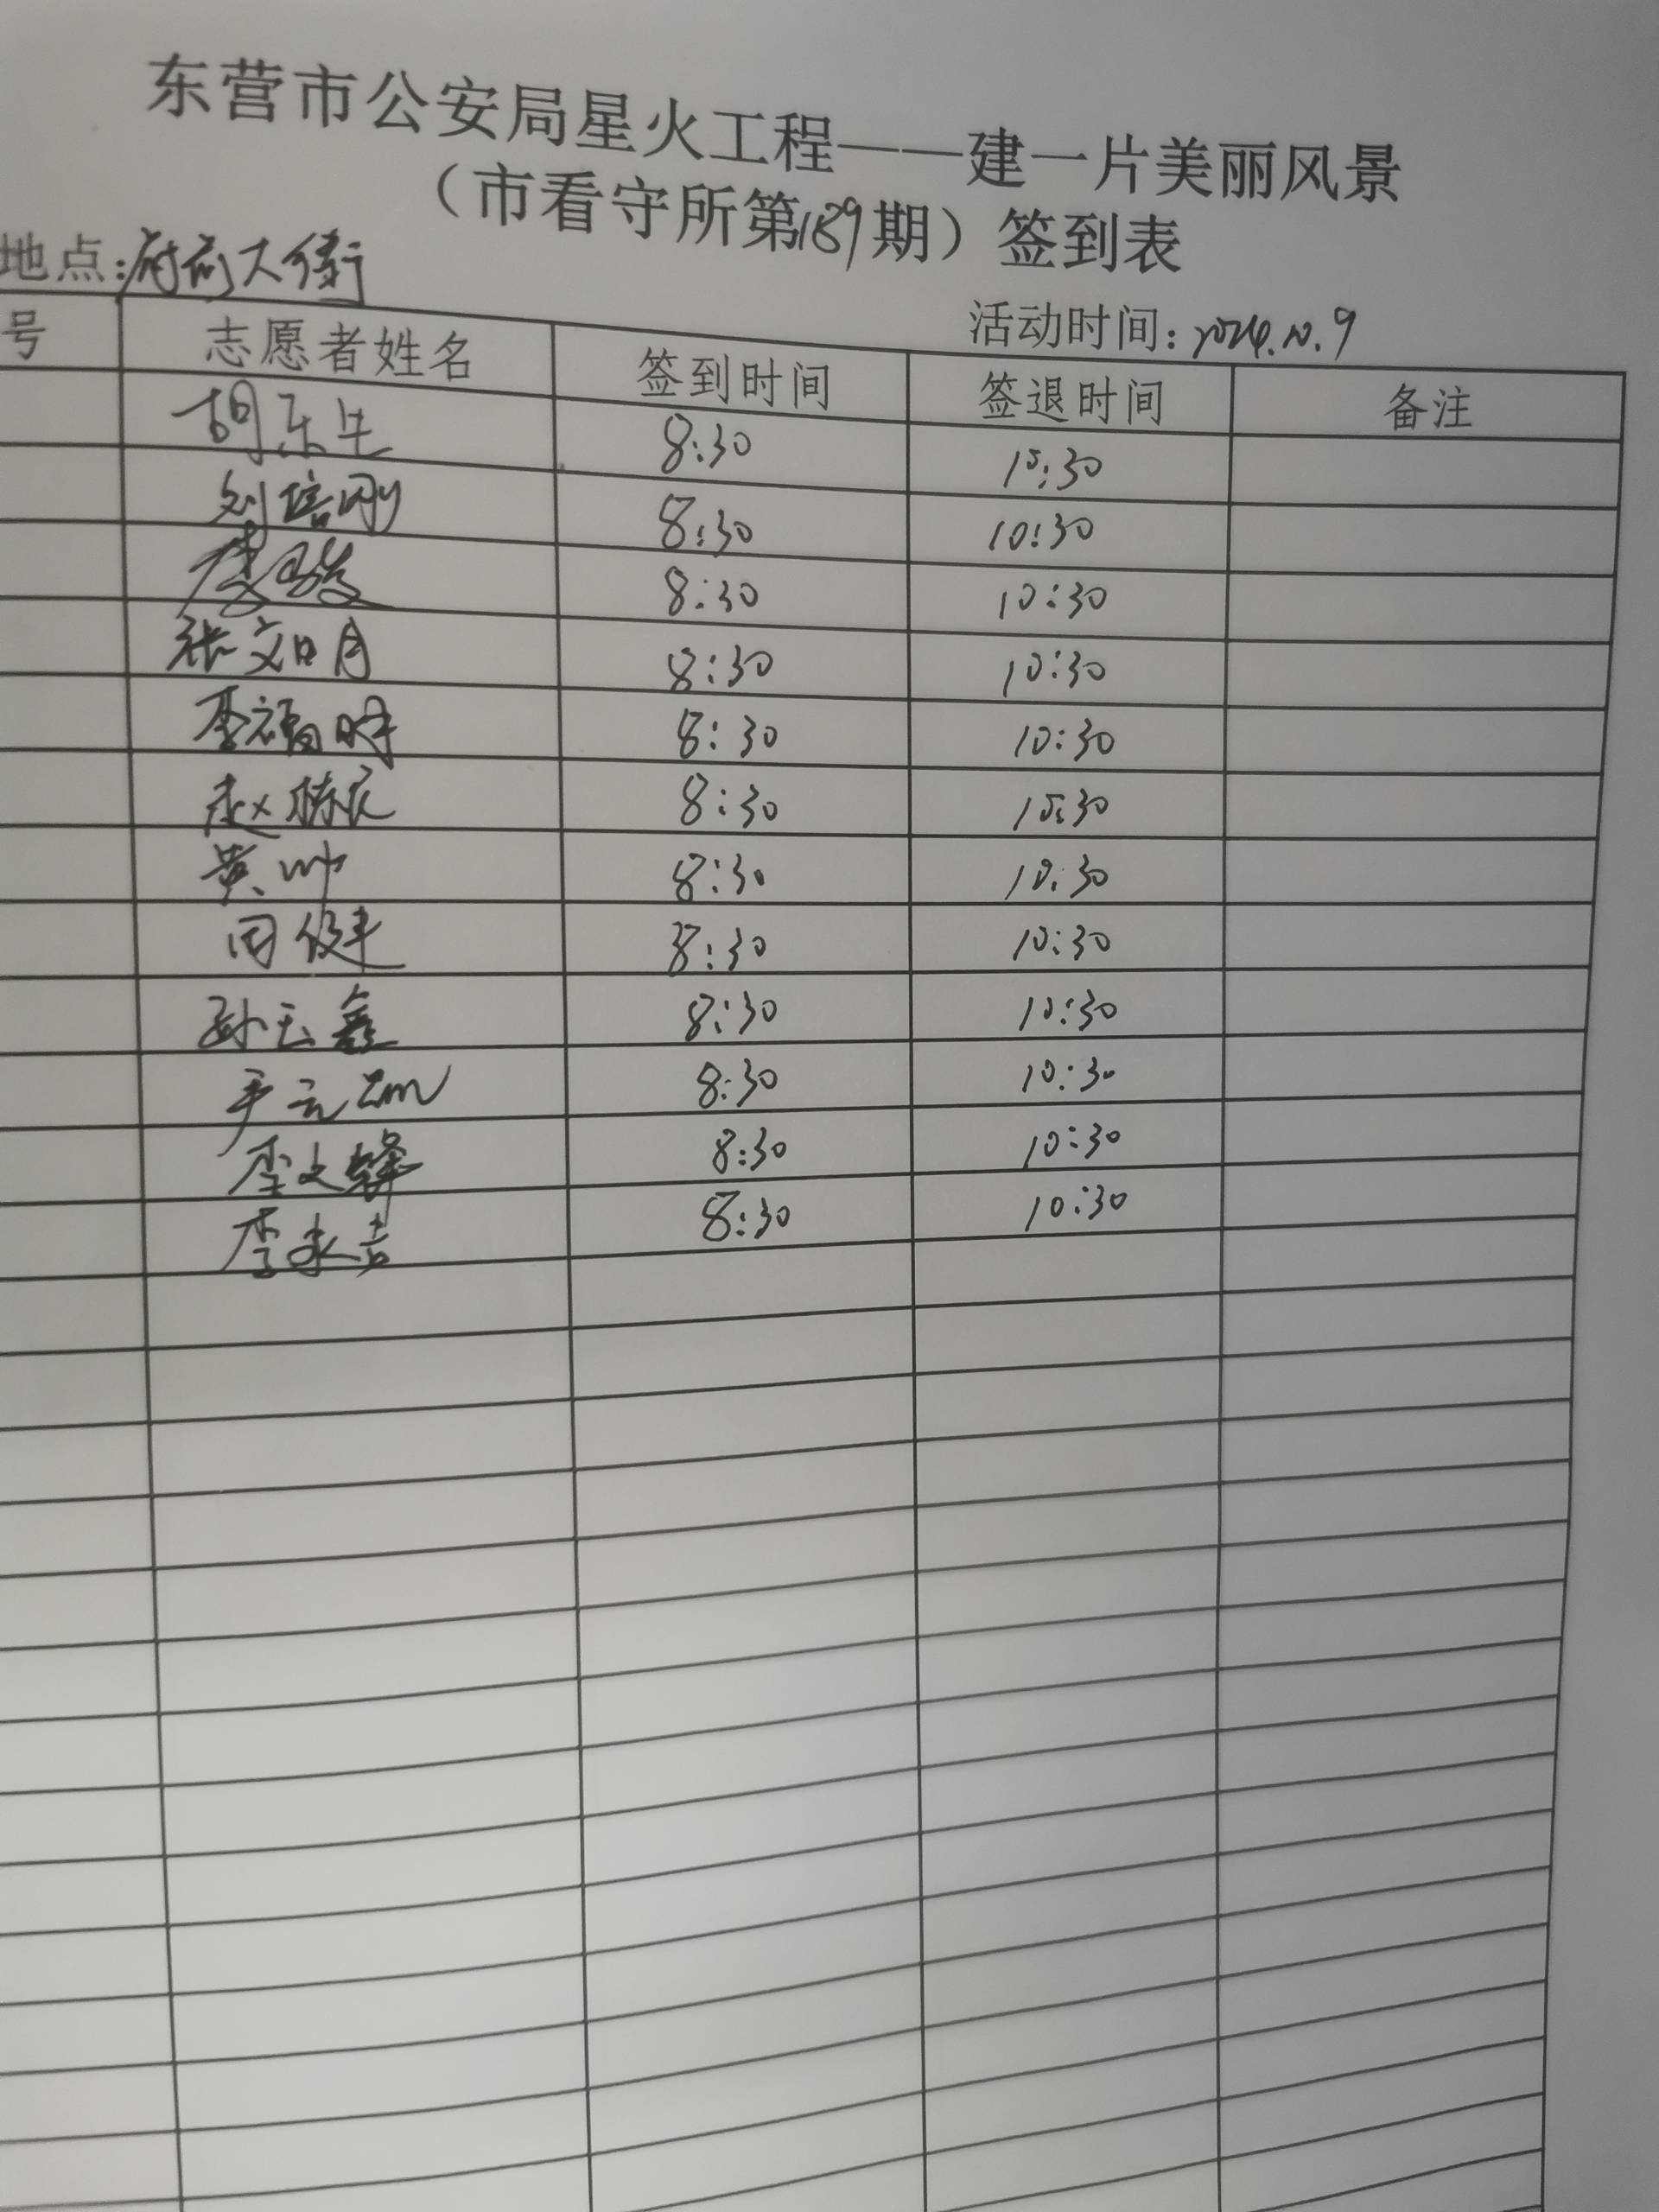 东营市公安局星火工程——建一片美丽风景
（市看守所第189期）签到表
地点：府前大街
活动时间：2024.10.9
号 志愿者姓名 签到时间 签退时间 备注
胡东生 8:30 10:30
刘培刚 8:30 10:30
8:30 10:30
张文明 8:30 10:30
李福时 8:30 10:30
赵 8:30 10:30
黄帅 8:30 10:30
田健 8:30 10:30
孙玉鑫 8:30 10:30
8:30 10:30
李文 8:30 10:30
李永吉 8:30 10:30